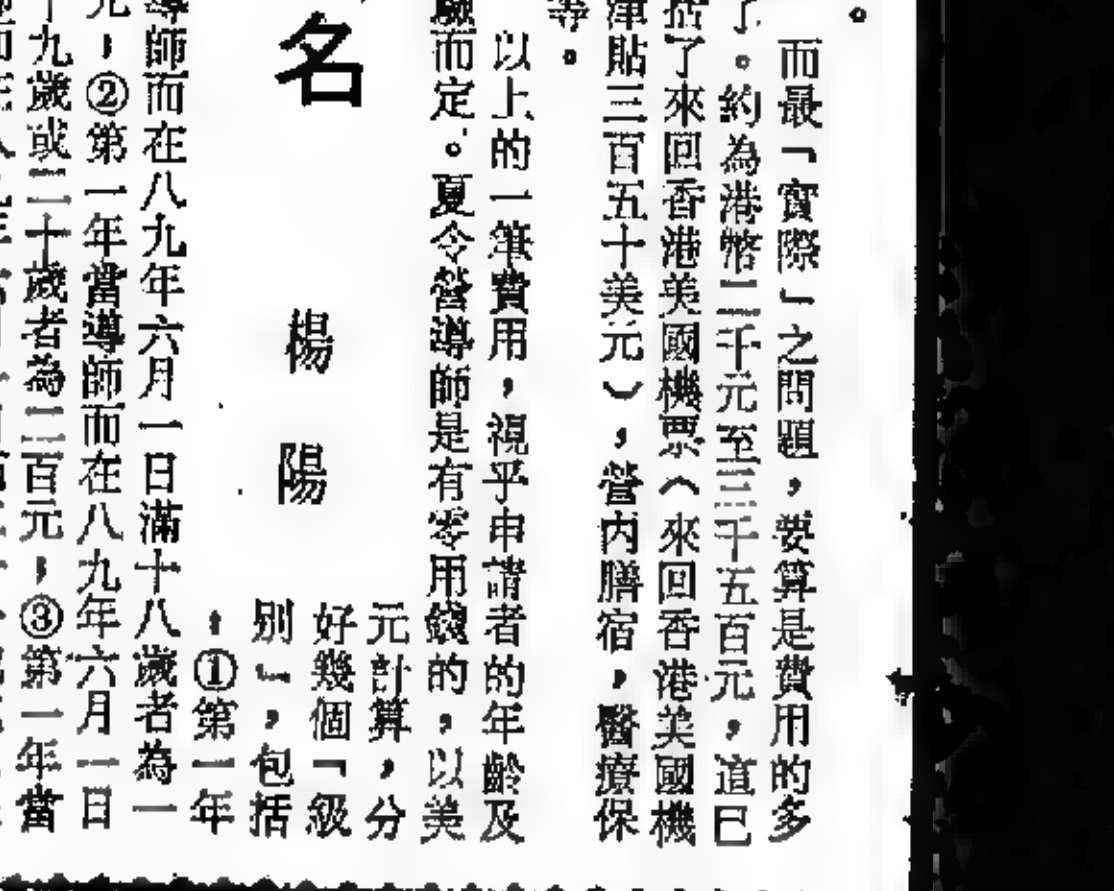 。
而最「實際」之問題，要算是費用的多
了。約為港幣二千元至三千五百元，這已
括了來回香港美國機票（來回香港美國機
津貼三百五十美元），營内膳宿，醫療保
等。
以上的一筆費用，視乎申請者的年齡及
驗而定。夏令營導師是有零用錢的，以美
元計算，分
好幾個「級
别」，包括
：①第一年
名
楊陽
導師而在八九年六月一日滿十八歲者為一
元，②第一年當導師而在八九年六月一日
十九歲或二十歲者為二百元，③第一年當